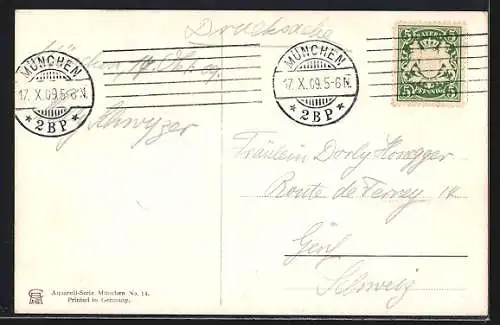 Drucksache
München, 17. Okt. 09.
Schwyzer
MÜNCHEN
17. X. 09. 5-6 N.
* 2 B P *
MÜNCHEN
17. X. 09. 5-6 N.
* 2 B P *
BAYERN
5 5
PFENNIG
Fräulein Dorly Honegger
Route de Ferney 14
Genf
Schweiz
Aquarell-Serie München No. 14.
Printed in Germany.